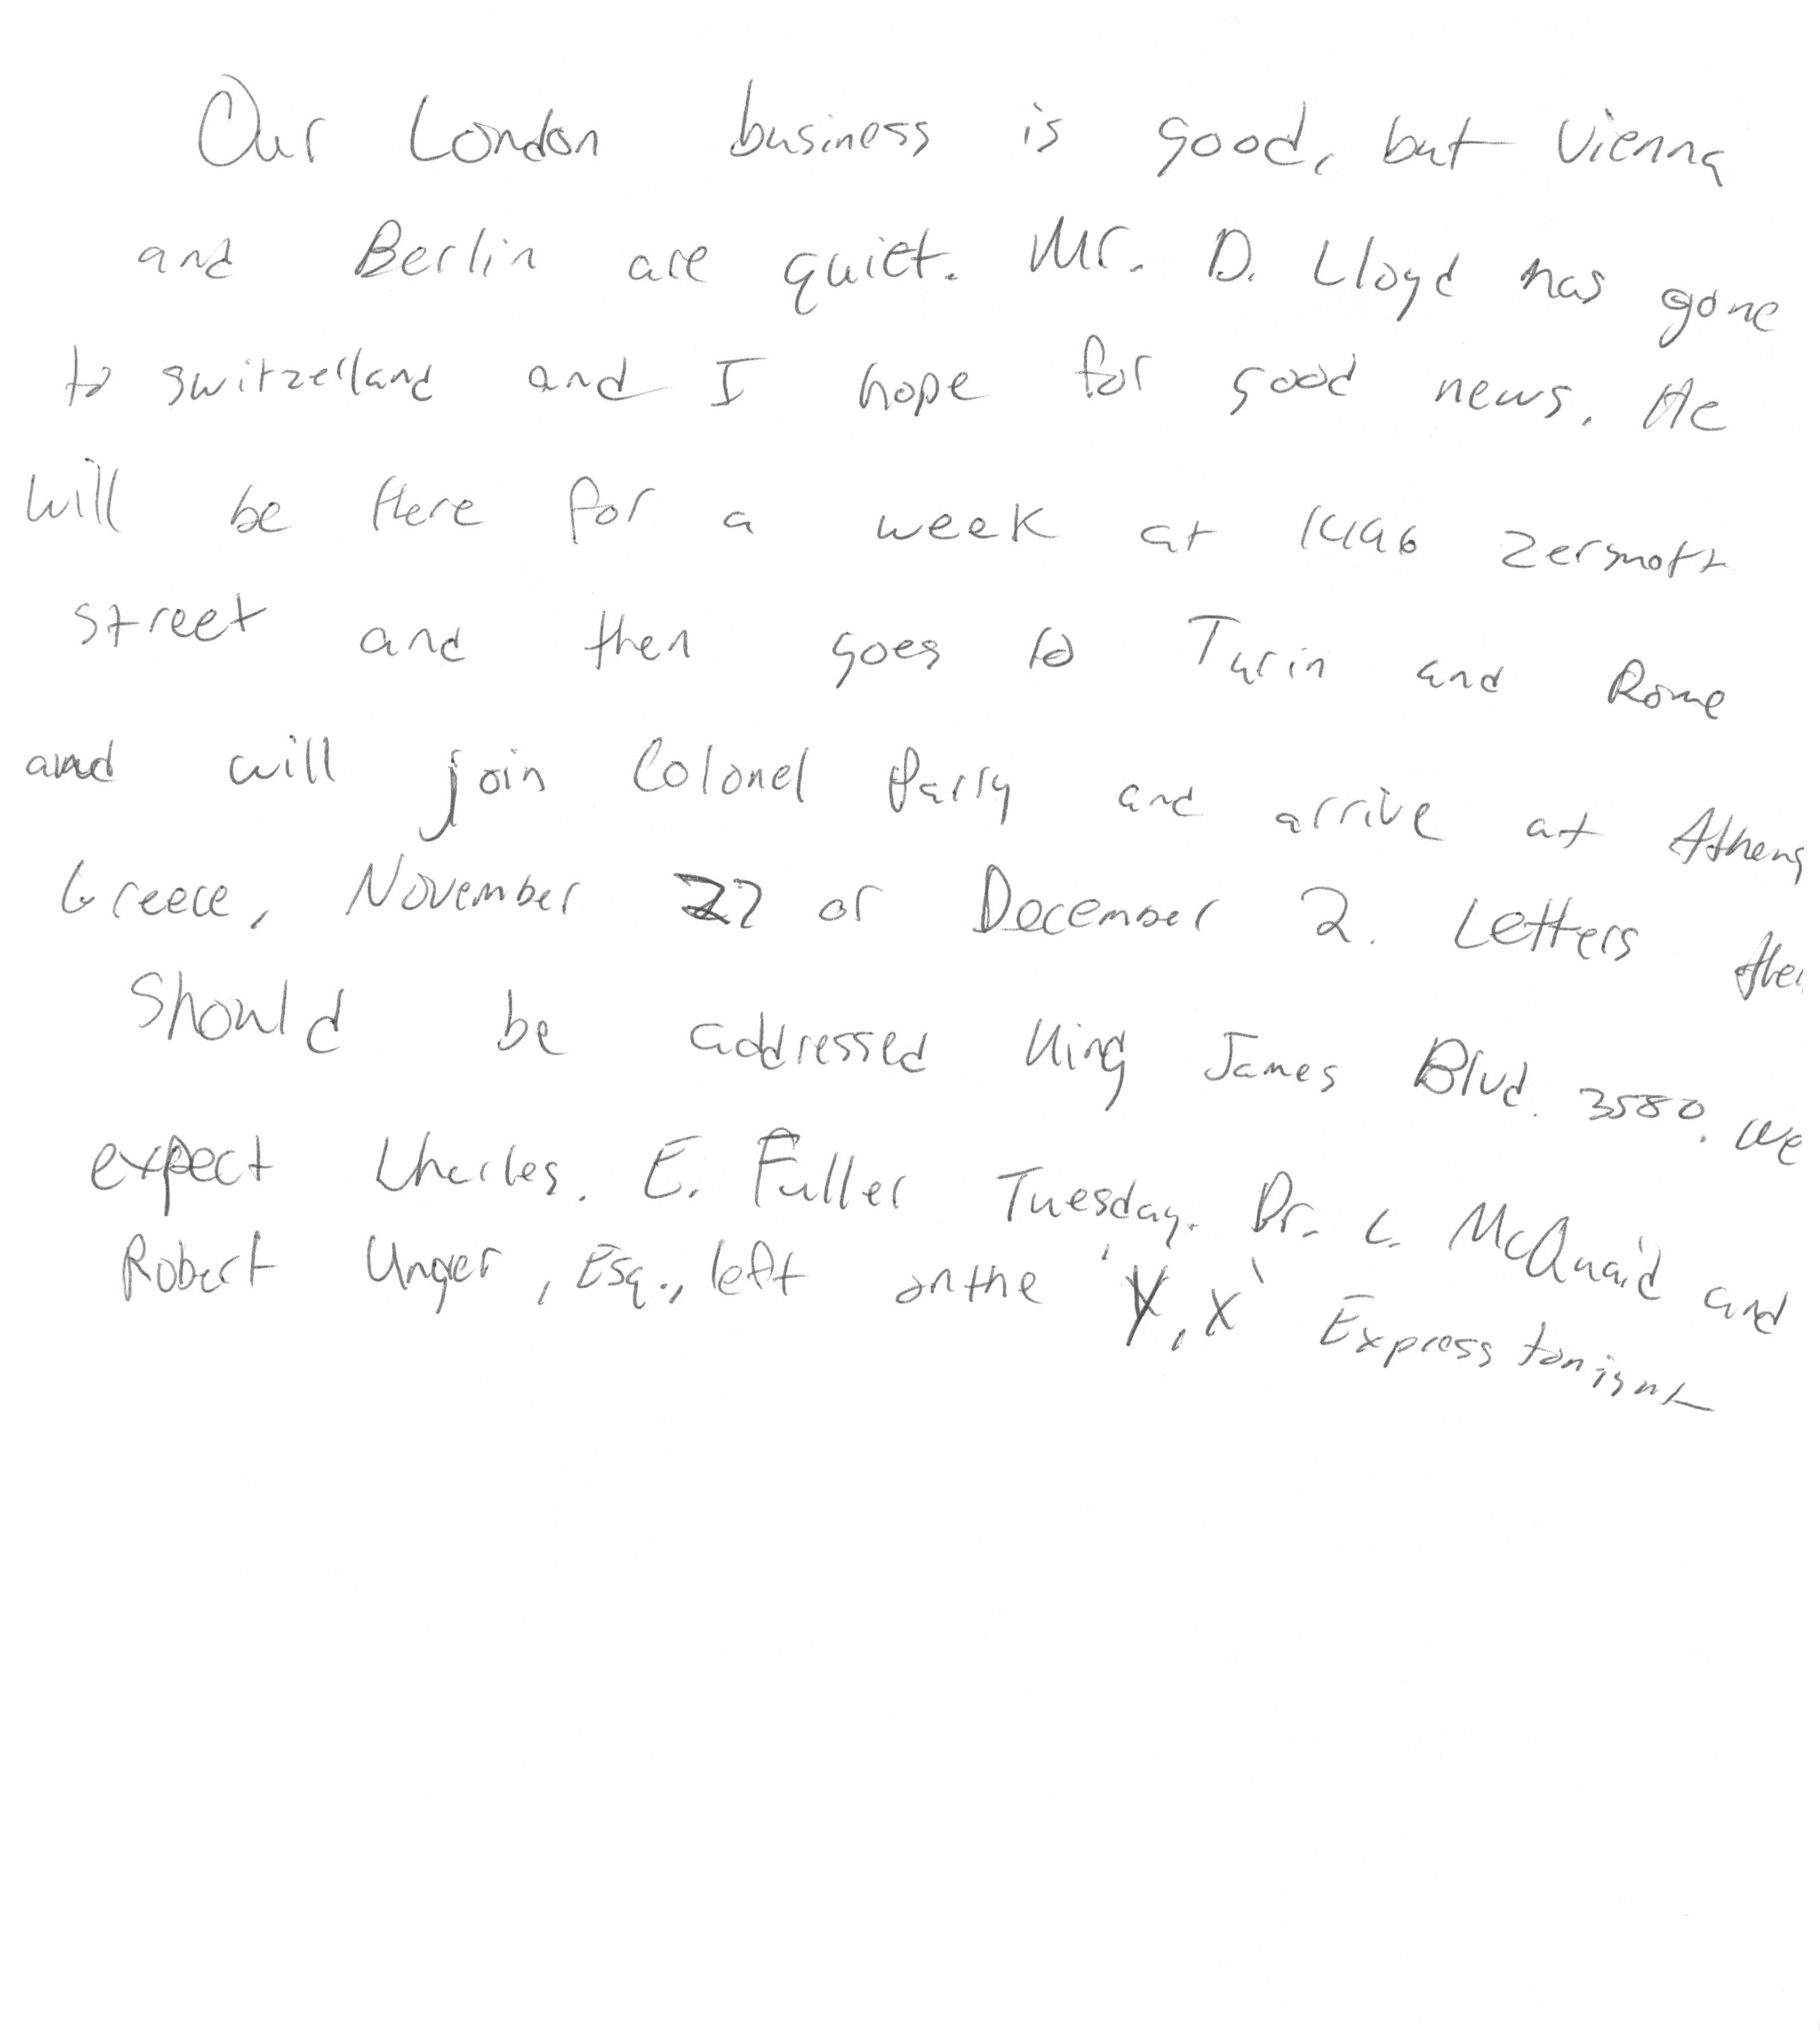 Our London business is good, but Vienna
and Berlin are quiet. Mr. D. Lloyd has gone
to switzerland and I hope for good news. He
will be Here for a week at 1496 Zermott
street and then goes to Turin and Rome
and will join Colonel Parry and arrive at Athens
Greece, November 27 or December 2. Letters ther
Should be addressed King James Blvd. 3580. We
expect Charles. E. Fuller Tuesday. Dr. L. McQuaid and
Robert Unger, Esq., left on the 'Y, X' Express tonight